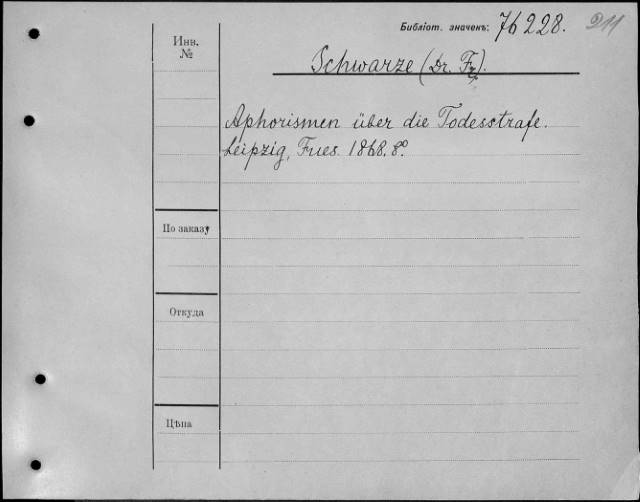 Библіот. значекъ: 76228. 211
Инв. №
Schwarze (Dr. Fr.).
Aphorismen über die Todesstrafe.
Leipzig, Fues. 1868. 8º.
По заказу
Откуда
Цѣна